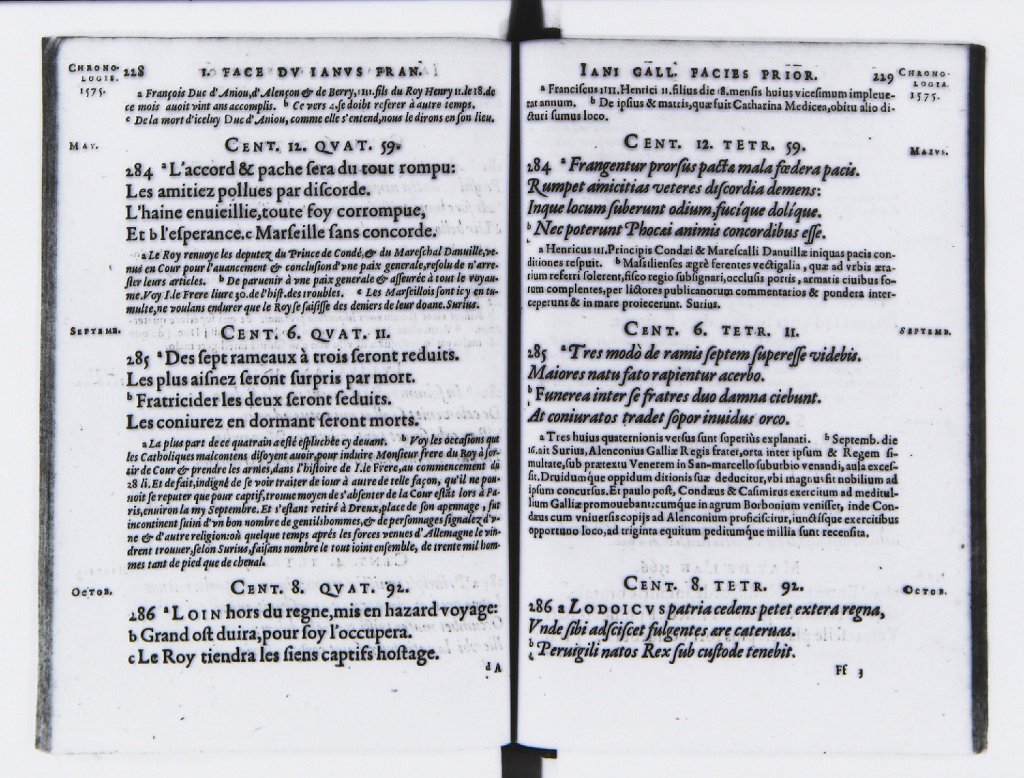 CHRONO-
LOGIE.
1575.
228 I. FACE DV IANVS FRAN.
a François Duc d'Aniou, d'Alençon & de Berry, IIII. fils du Roy Henry II. le 18. de
ce mois auoit vint ans accomplis. b Ce vers 4. se doibt referer à autre temps.
c De la mort d'iceluy Duc d'Aniou, comme elle s'entend, nous le dirons en son lieu.
MAY.
CENT. 12. QVAT. 59.
284 a L'accord & pache sera du tout rompu:
Les amitiez pollues par discorde.
L'haine enuieillie, toute foy corrompue,
Et b l'esperance. c Marseille sans concorde.
a Le Roy renuoye les deputez du Prince de Condé, & du Mareschal Danuille, ve-
nus en Cour pour l'auancement & conclusion d'vne paix generale, resolu de n'arre-
ster leurs articles. b De paruenir à vne paix generale & asseurée à tout le royau-
me. Voy I. le Frere liure 30. de l'hist. des troubles. c Les Marseillois sont icy en tu-
multe, ne voulans endurer que le Roy se saisisse des deniers de leur doane. Surius.
SEPTEMB.
CENT. 6. QVAT. II.
285 a Des sept rameaux à trois seront reduits.
Les plus aisnez seront surpris par mort.
b Fratricider les deux seront seduits.
Les coniurez en dormant seront morts.
a La plus part de ce quatrain a esté espluchée cy deuant. b Voy les occasions que
les Catholiques malcontens disoyent auoir, pour induire Monsieur frere du Roy à sor-
tir de Cour & prendre les armes, dans l'histoire de I. le Frere, au commencement du
28 li. Et de fait, indigné de se voir traiter de iour à autre de telle façon, qu'il ne pou-
uoit se reputer que pour captif, trouue moyen de s'absenter de la Cour estãt lors à Pa-
ris, enuiron la my Septembre. Et s'estant retiré à Dreux, place de son apennage, fut
incontinent suiui d'vn bon nombre de gentilshommes, & de personnages signalez d'v-
ne & d'autre religion: où quelque temps aprés les forces venues d'Allemagne le vin-
drent trouuer, selon Surius, faisans nombre le tout ioint ensemble, de trente mil hom-
mes tant de pied que de cheual.
OCTOB.
CENT. 8. QVAT. 92.
286 a LOIN hors du regne, mis en hazard voyage:
b Grand ost duira, pour soy l'occupera.
c Le Roy tiendra les siens captifs hostage.
d A
IANI GALL. FACIES PRIOR. 229
CHRONO-
LOGIA.
1575.
a Franciscus IIII. Henrici II. filius die 18. mensis huius vicesimum impleue-
rat annum. b De ipsius & matris, quæ fuit Catharina Medicea, obitu alio di-
cturi sumus loco.
MAIVS.
CENT. 12. TETR. 59.
284 a Frangentur prorsùs pacta mala fœdera pacis.
Rumpet amicitias veteres discordia demens:
Inque locum suberunt odium, fucique dolíque.
b Nec poterunt Phocai animis concordibus esse.
a Henricus III. Principis Condæi & Marescalli Danuillæ iniquas pacis con-
ditiones respuit. b Massilienses ægrè ferentes vectigalia, quæ ad vrbis æra-
rium referri solerent, fisco regio subsignari, occlusis portis, armatis ciuibus fo-
rum complentes, per lictores publicanorum commentarios & pondera inter-
ceperunt & in mare proiecerunt. Surius.
SEPTEMB.
CENT. 6. TETR. II.
285 a Tres modò de ramis septem superesse videbis.
Maiores natu fato rapientur acerbo.
b Funerea inter se fratres duo damna ciebunt.
At coniuratos tradet sopor inuidus orco.
a Tres huius quaternionis versus sunt superiùs explanati. b Septemb. die
16. ait Surius, Alenconius Galliæ Regis frater, orta inter ipsum & Regem si-
multate, sub prætextu Venerem in San-marcello suburbio venandi, aula exces-
sit. Druidumque oppidum ditionis suæ deducitur, vbi magnus fit nobilium ad
ipsum concursus. Et paulo post, Condæus & Casimirus exercitum ad meditul-
lium Galliæ promouebant: cumque in agrum Borbonium venisset, inde Con-
dæus cum vniuersis copijs ad Alenconium proficiscitur, iunctísque exercitibus
opportuno loco, ad triginta equitum peditumque millia sunt recensita.
OCTOB.
CENT. 8. TETR. 92.
286 a LODOICVS patria cedens petet extera regna,
Vnde sibi adsciscet fulgentes ære cateruas.
b Peruigili natos Rex sub custode tenebit.
Ff 3